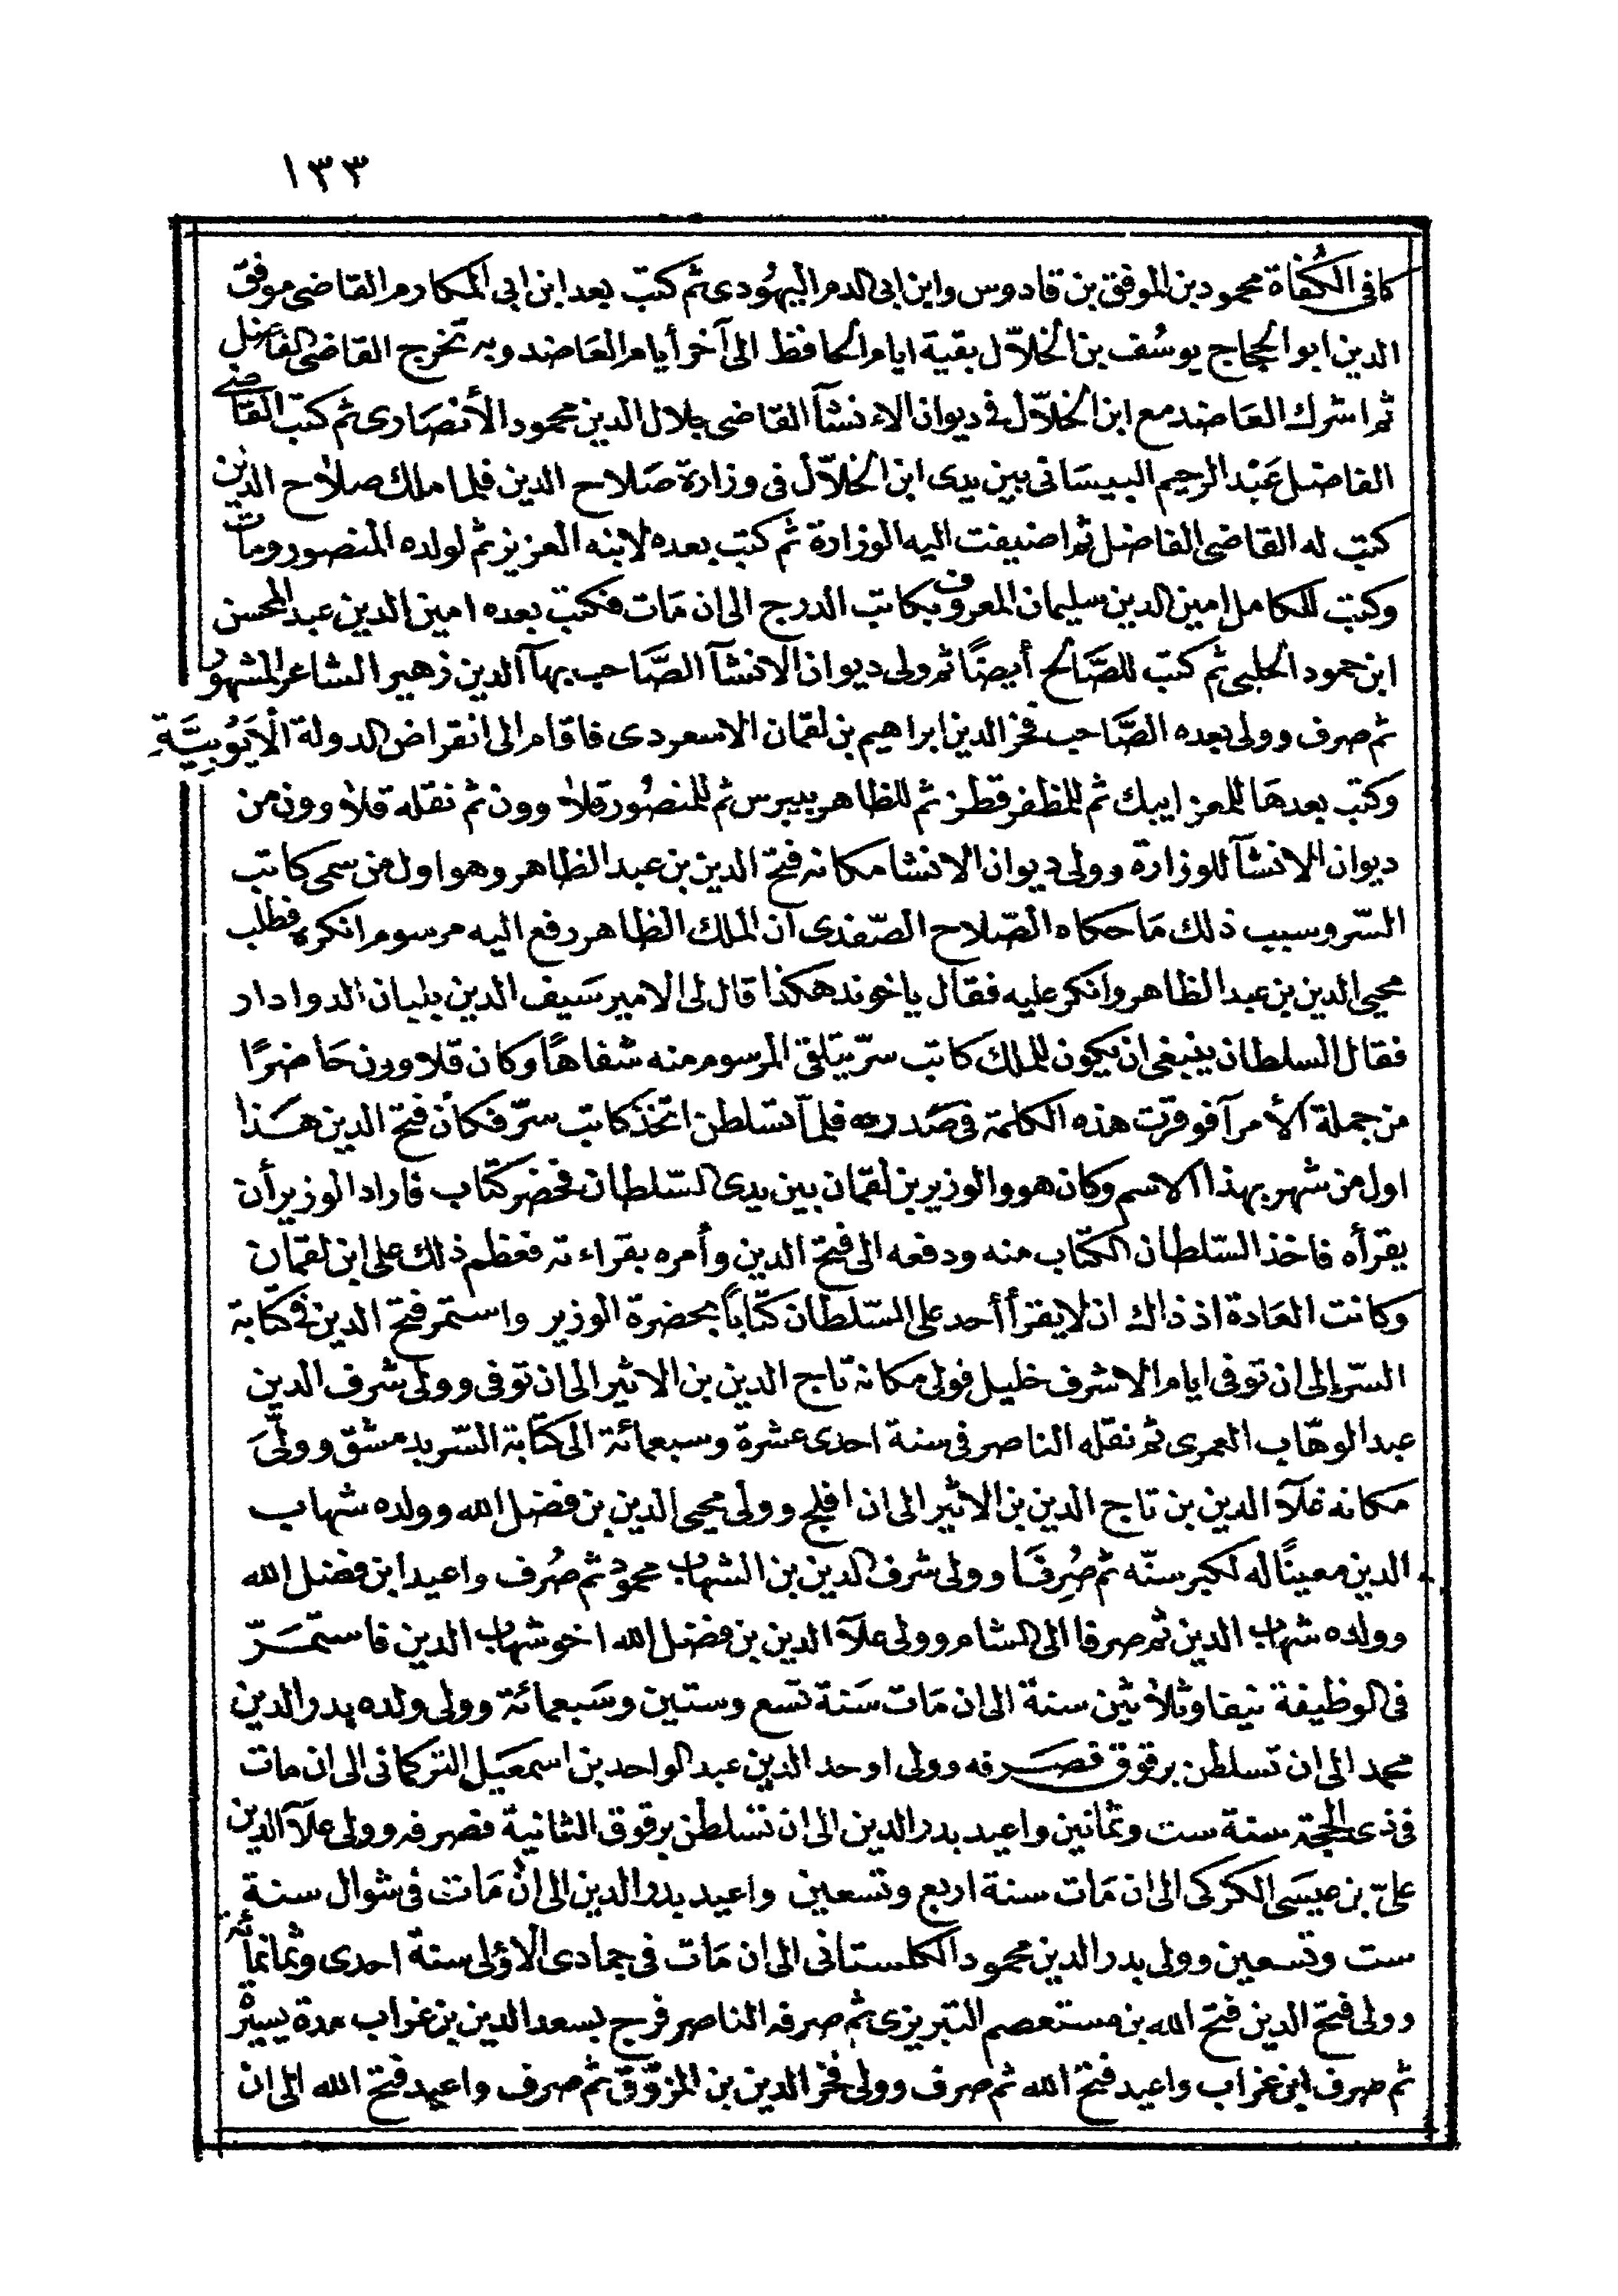 ١٣٣
كافى الكُفاة محمود بن الموفق بن قادوس وابن ابى الدم اليهُودى ثم كتب بعد ابن ابى المكارم القاضى موفق
الدين ابو الحجاج يوسُف بن الخلاّل بقية ايام الحافظ الى آخر أيام العَاضد وبه تخرج القاضى الفاضل
ثم اشرك العَاضد مع ابن الخلاّل فى ديوان الاءنشآ القاضى جلال الدين محمود الأنصَارى ثم كتب القاضى
الفاضل عَبْد الرحيم البيسَانى بين يدى ابن الخلاّل فى وزارة صَلاح الدين فلما ملك صلاح الدين
كتب له القاضى الفاضل ثم اضيفت اليه الوزارة ثم كتب بعده لابنه العزيز ثم لولده المنصور ومات
وكتب للكامل امين الدين سليمان المعروف بكاتب الدرج الى ان مَات فكتب بعده امين الدين عبد المحسن
ابن حمود الحلبى ثم كتب للصَّالح أيضًا ثم ولى ديوان الانشآ الصَّاحب بهآ الدين زهير الشاعر المشهور
ثم صرف وولى بعده الصَّاحب فخر الدين ابراهيم بن لقمان الاسعردى فاقام الى انقراض الدولة الْأَيّوُبِيَّةِ
وكتب بعدهَا للمعز ايبك ثم للمظفر قطز ثم للظاهر بيبرس ثم للمنصُور قلاوون ثم نقله قلاوون من
ديوان الانشآ للوزارة وولى ديوان الانشا مكانه فتح الدين بن عبد الظاهر وهو اول من سمى كاتب
السّر وسبب ذلك مَا حكاه الصّلاح الصّفدى ان الملك الظاهر رفع اليه مرسوم انكره فطلب
محيى الدين بن عبد الظاهر وانكر عليه فقال يا خوند هكذا قال لى الامير سَيف الدين بلبان الدوادار
فقال السلطان ينبغى ان يكون للملك كاتب سرّ يتلقى المرسوم منه شفاهًا وكان قلاوون حَاضرًا
من جملة الأمرآ فوقرت هذه الكلمة فى صَدره فلمّا تسلطن اتخذ كاتب سرّ فكان فتح الدين هـذا
اول من شهر بهذا الاسم وكان هو والوزير بن لقمان بين يدى السّلطان فحضر كتاب فاراد الوزير أن
يقرأه فاخذ السّلطان الكتاب منه ودفعه الى فتح الدين وأمره بقراءته فعظم ذلك على ابن لقمان
وكانت العَادة اذ ذاك ان لا يقرأ أحد على السّلطان كتاباً بحضرة الوزير واستمر فتح الدين فى كتابة
السّر إلى ان توفى ايام الاشرف خليل فولى مكانه تاج الدين بن الاثير الى ان توفى وولى شرف الدين
عبد الوهّاب العمرى ثم نقله الناصر فى سنة احدى عشرة وسبعمائة الى كتابة السّر بدمشق وولّىَ
مكانه علآ الدين بن تاج الدين بن الاثير الى ان افلج وولى محيى الدين بن فضل الله وولده شهاب
الدين معينًا له لكبر سنّه ثم صُرِفَا وولى شرف الدين بن الشهاب محمود ثم صُرف واعيد ابن فضل الله
وولده شهاب الدين ثم صرفا الى الشام وولى علآ الدين بن فضل الله اخو شهاب الدين فاستمـَرّ
فى الوظيفة نيفا وثلاثين سنة الى ان مَات سَنة تسع وستين وسَبعمائة وولى ولده بدر الدين
محمد الى ان تسلطن برقوق فصَـرفه وولى اوحد الدين عبد الواحد بن اسمعيَل التركمانى الى ان مات
فى ذى الحجة سنة ست وثمانين واعيد بدر الدين الى ان تسلطن برقوق الثانية فصرفه وولى علآ الدين
علىّ بن عيسَى الكركى الى ان مَات سنة اربع وتسعين واعيد بدر الدين الى ان مَات فى شوال سنة
ست وتسعين وولى بدر الدين محمود الكلستانى الى ان مَات فى جمادى الأولى سنة احدى وثمانمائة
وولى فتح الدين فتح الله بن مستعصم التبريزى ثم صرفه الناصر فرج بسعد الدين بن غراب مدة يسيرة
ثم صرف ابن غراب واعيد فتح الله ثم صرف وولى فخر الدين بن المزوّق ثم صرف واعيد فتح الله الى ان